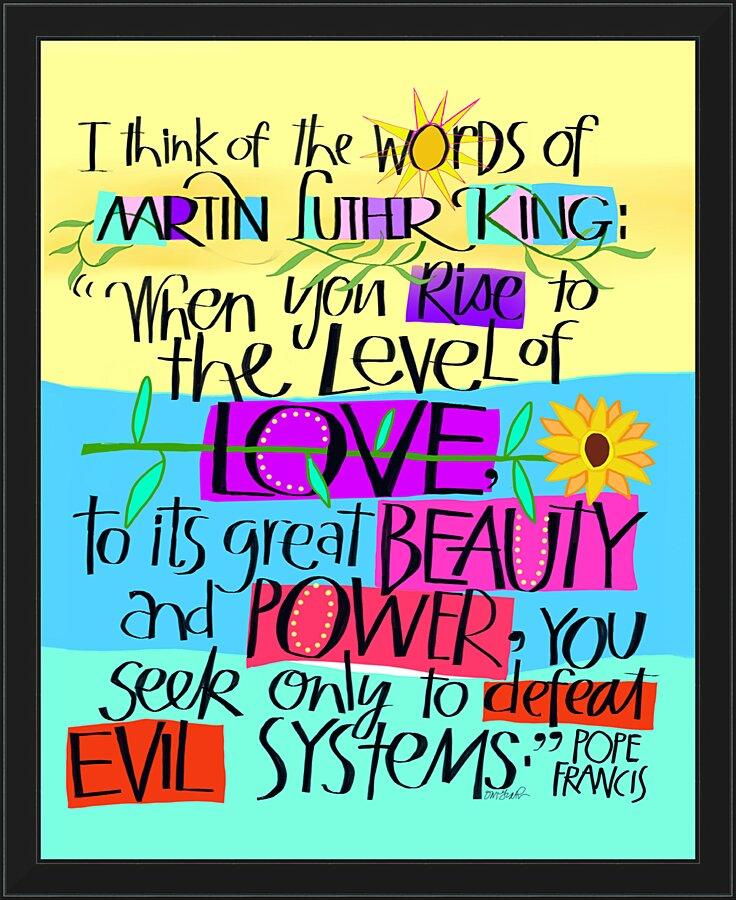 I think of the words of
MARTIN LUTHER KING:
"When you Rise to
the Level of
LOVE,
to its great BEAUTY
and POWER, YOU
seek only to defeat
EVIL SYSTEMS."
POPE
FRANCIS